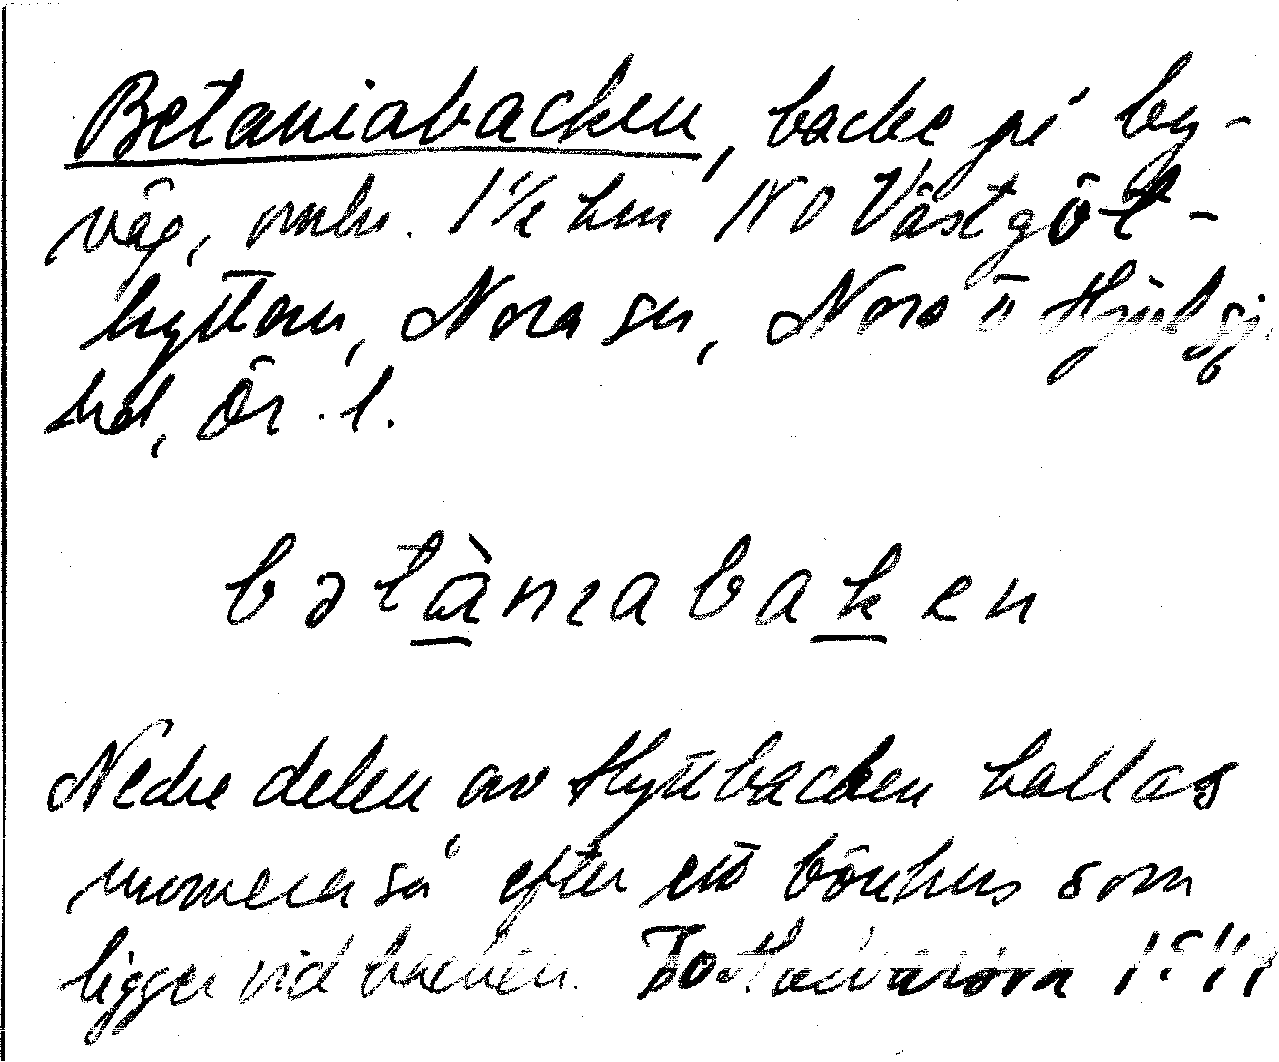 Betaniabacken, backe på by-
väg, omkr. 1½ km NO Västgöt-
hyttan, Nora sn, Nora o Hjulsjö
bd, Ör. l.
bətàniabaken
Nedre delen av Hyttbacken kallas
numera så efter ett bönhus som
ligger vid backen.